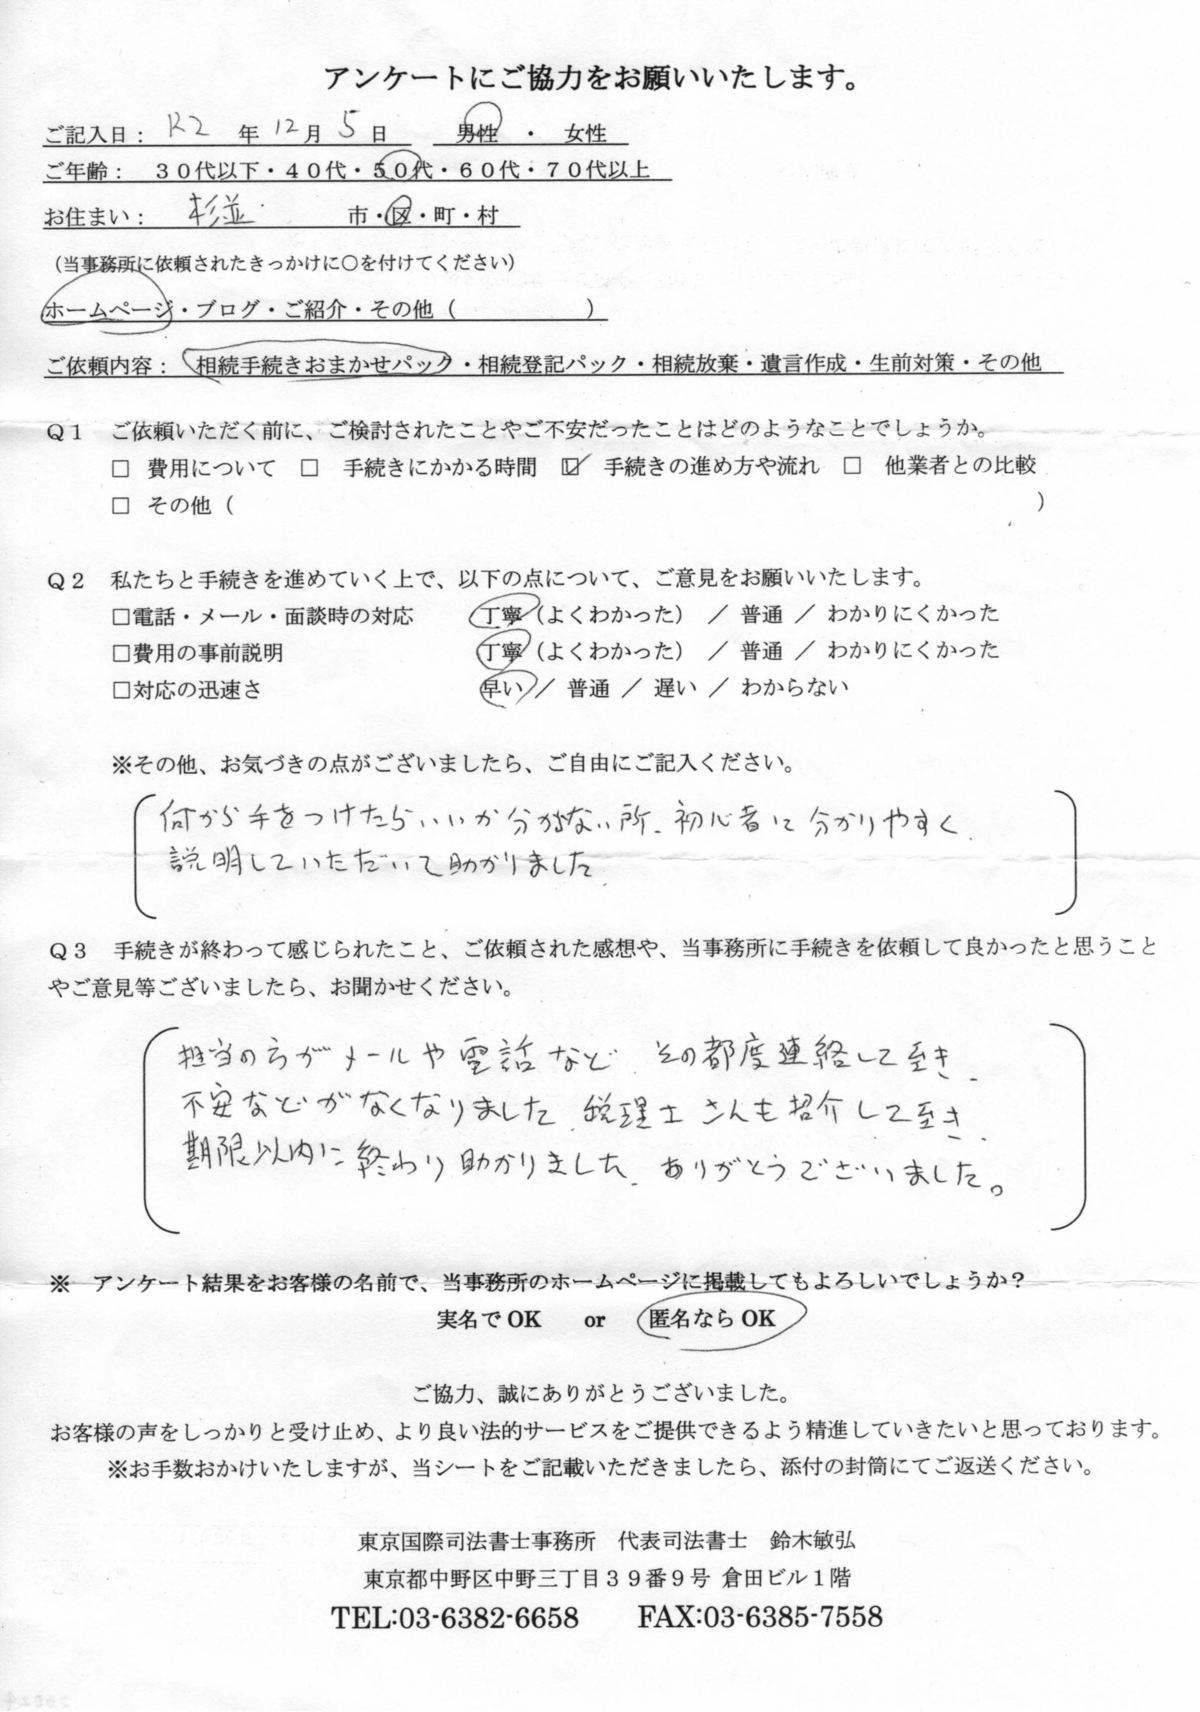 アンケートにご協力をお願いいたします。
ご記入日： R2 年 12 月 5 日 男性 ・ 女性
ご年齢： ３０代以下・４０代・５０代・６０代・７０代以上
お住まい： 杉並 市・区・町・村
（当事務所に依頼されたきっかけに○を付けてください）
ホームページ・ブログ・ご紹介・その他（ ）
ご依頼内容： 相続手続きおまかせパック・相続登記パック・相続放棄・遺言作成・生前対策・その他
Ｑ１ ご依頼いただく前に、ご検討されたことやご不安だったことはどのようなことでしょうか。
□ 費用について □ 手続きにかかる時間 ☑ 手続きの進め方や流れ □ 他業者との比較
□ その他（ ）
Ｑ２ 私たちと手続きを進めていく上で、以下の点について、ご意見をお願いいたします。
□電話・メール・面談時の対応 丁寧（よくわかった） ／ 普通 ／ わかりにくかった
□費用の事前説明 丁寧（よくわかった） ／ 普通 ／ わかりにくかった
□対応の迅速さ 早い ／ 普通 ／ 遅い ／ わからない
※その他、お気づきの点がございましたら、ご自由にご記入ください。
何から手をつけたらいいか分からない所、初心者に分かりやすく、
説明していただいて助かりました
Ｑ３ 手続きが終わって感じられたこと、ご依頼された感想や、当事務所に手続きを依頼して良かったと思うこと
やご意見等ございましたら、お聞かせください。
担当の方がメールや電話など、その都度連絡して頂き、
不安などがなくなりました、税理士さんも紹介して頂き、
期限以内に終わり助かりました、ありがとうございました。
※ アンケート結果をお客様の名前で、当事務所のホームページに掲載してもよろしいでしょうか？
実名で OK or 匿名なら OK
ご協力、誠にありがとうございました。
お客様の声をしっかりと受け止め、より良い法的サービスをご提供できるよう精進していきたいと思っております。
※お手数おかけいたしますが、当シートをご記載いただきましたら、添付の封筒にてご返送ください。
東京国際司法書士事務所 代表司法書士 鈴木敏弘
東京都中野区中野三丁目３９番９号 倉田ビル１階
TEL:03-6382-6658 FAX:03-6385-7558